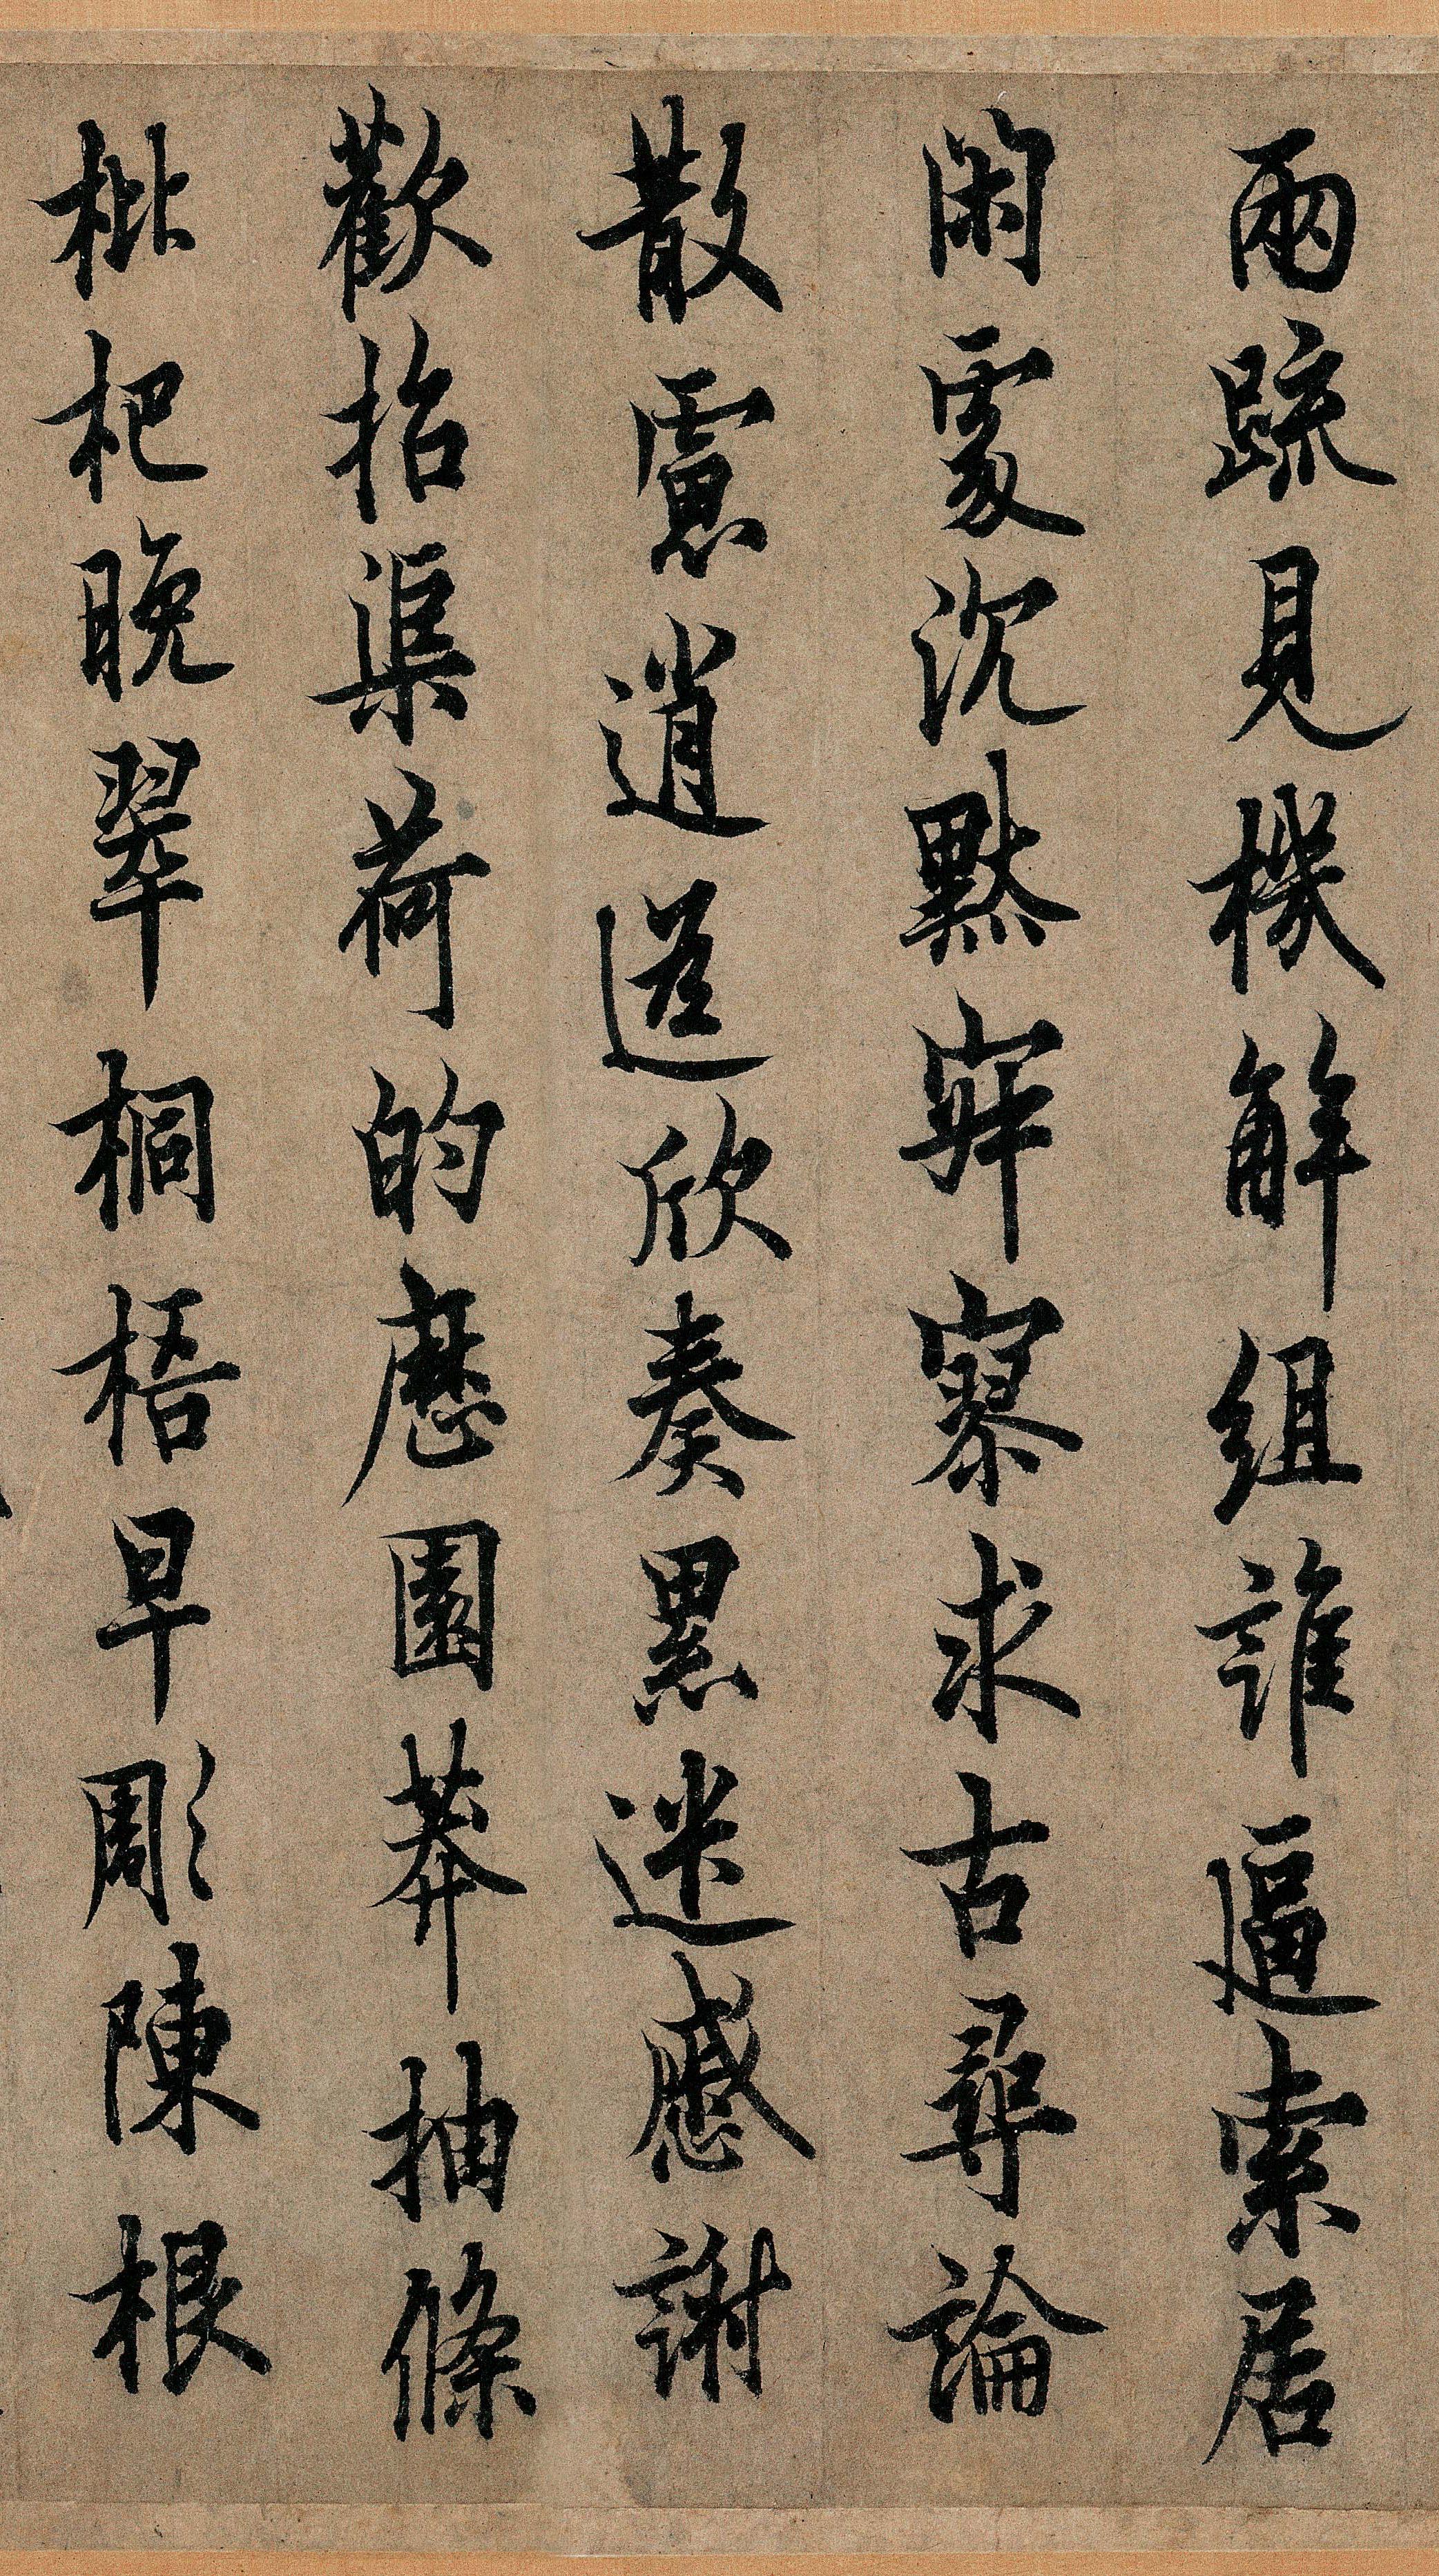 兩疏見機解組誰逼索居
閑處沉默寂寥求古尋論
散慮逍遙欣奏累迷慼謝
歡招渠荷的歷園莽抽條
枇杷晚翠桐梧早彫陳根